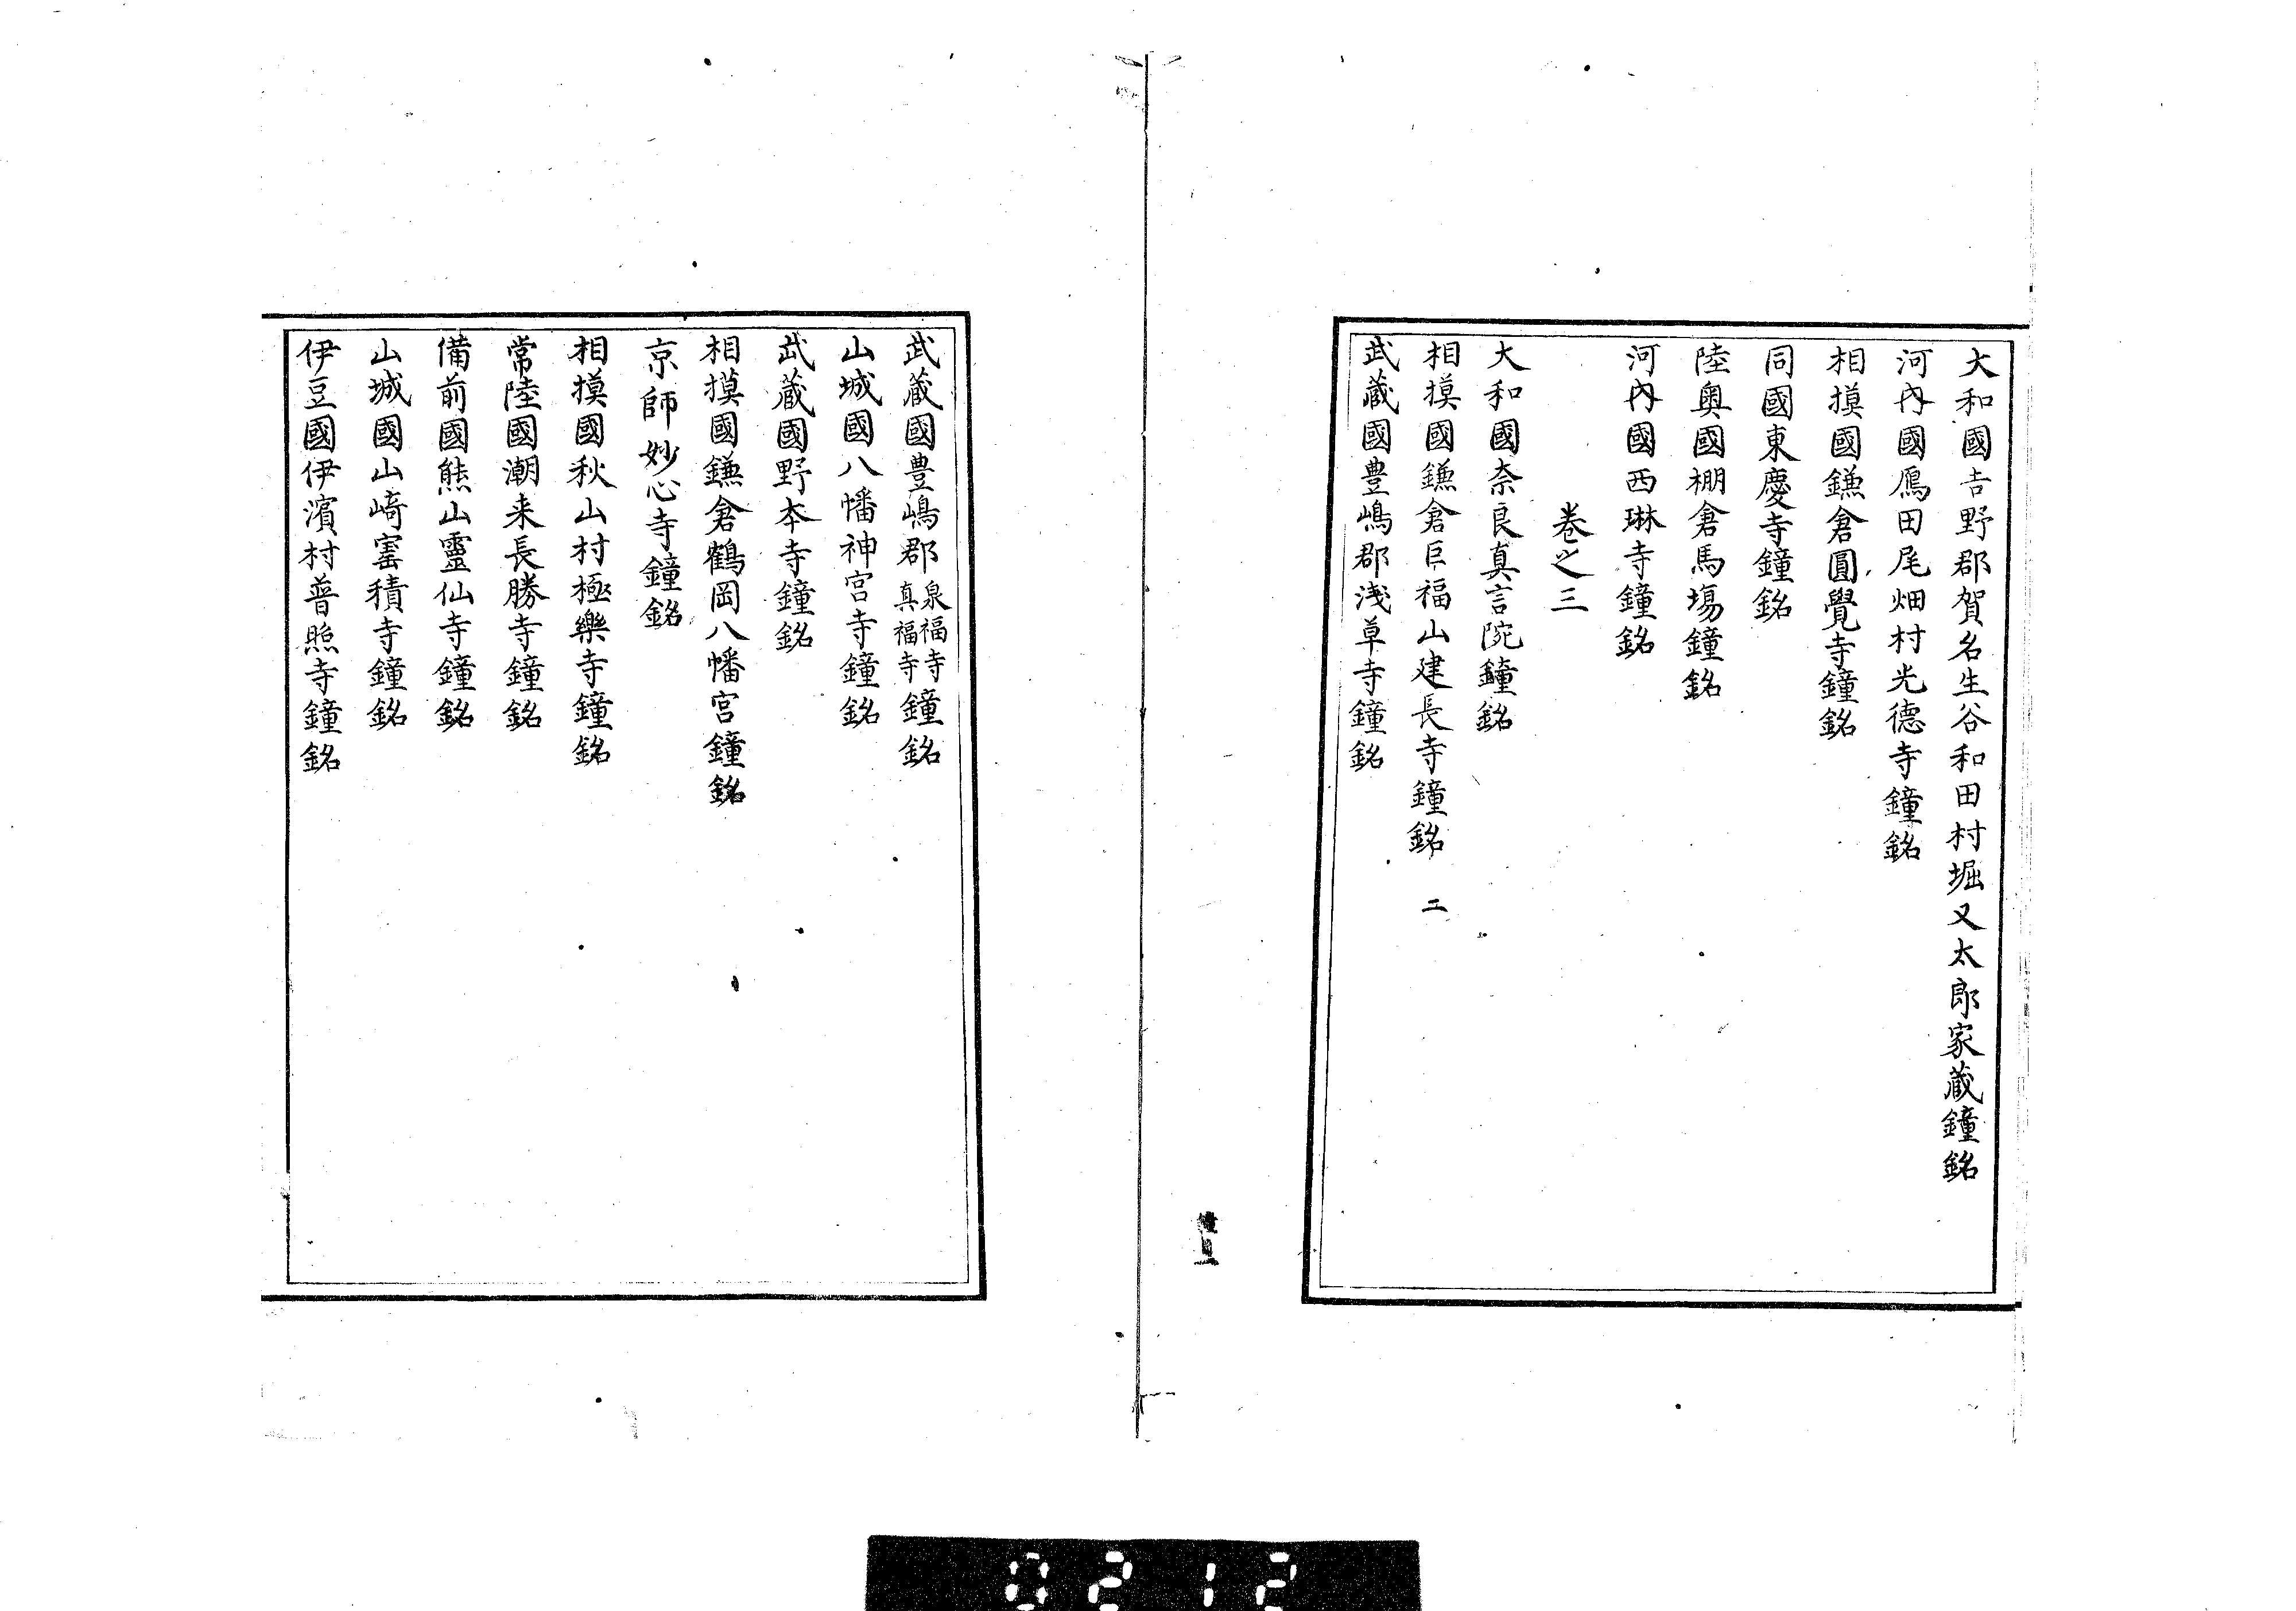 大和國吉野郡賀名生谷和田村堀又太郎家蔵鐘銘
河内國鴈田尾畑村光德寺鐘銘
相摸國鎌倉圓覺寺鐘銘
同國東慶寺鐘銘
陸奥國棚倉馬塲鐘銘
河内國西琳寺鐘銘
卷之三
大和國奈良真言院鐘銘
相摸國鎌倉巨福山建長寺鐘銘 二
武蔵國豊嶋郡浅草寺鐘銘
鐘目二
武蔵國豊嶋郡泉福寺真福寺鐘銘
山城國八幡神宮寺鐘銘
武蔵國野本寺鐘銘
相摸國鎌倉鶴岡八幡宮鐘銘
京師妙心寺鐘銘
相摸國秋山村極樂寺鐘銘
常陸國潮来長勝寺鐘銘
備前國熊山靈仙寺鐘銘
山城國山崎寳積寺鐘銘
伊豆國伊濱村普照寺鐘銘
0212